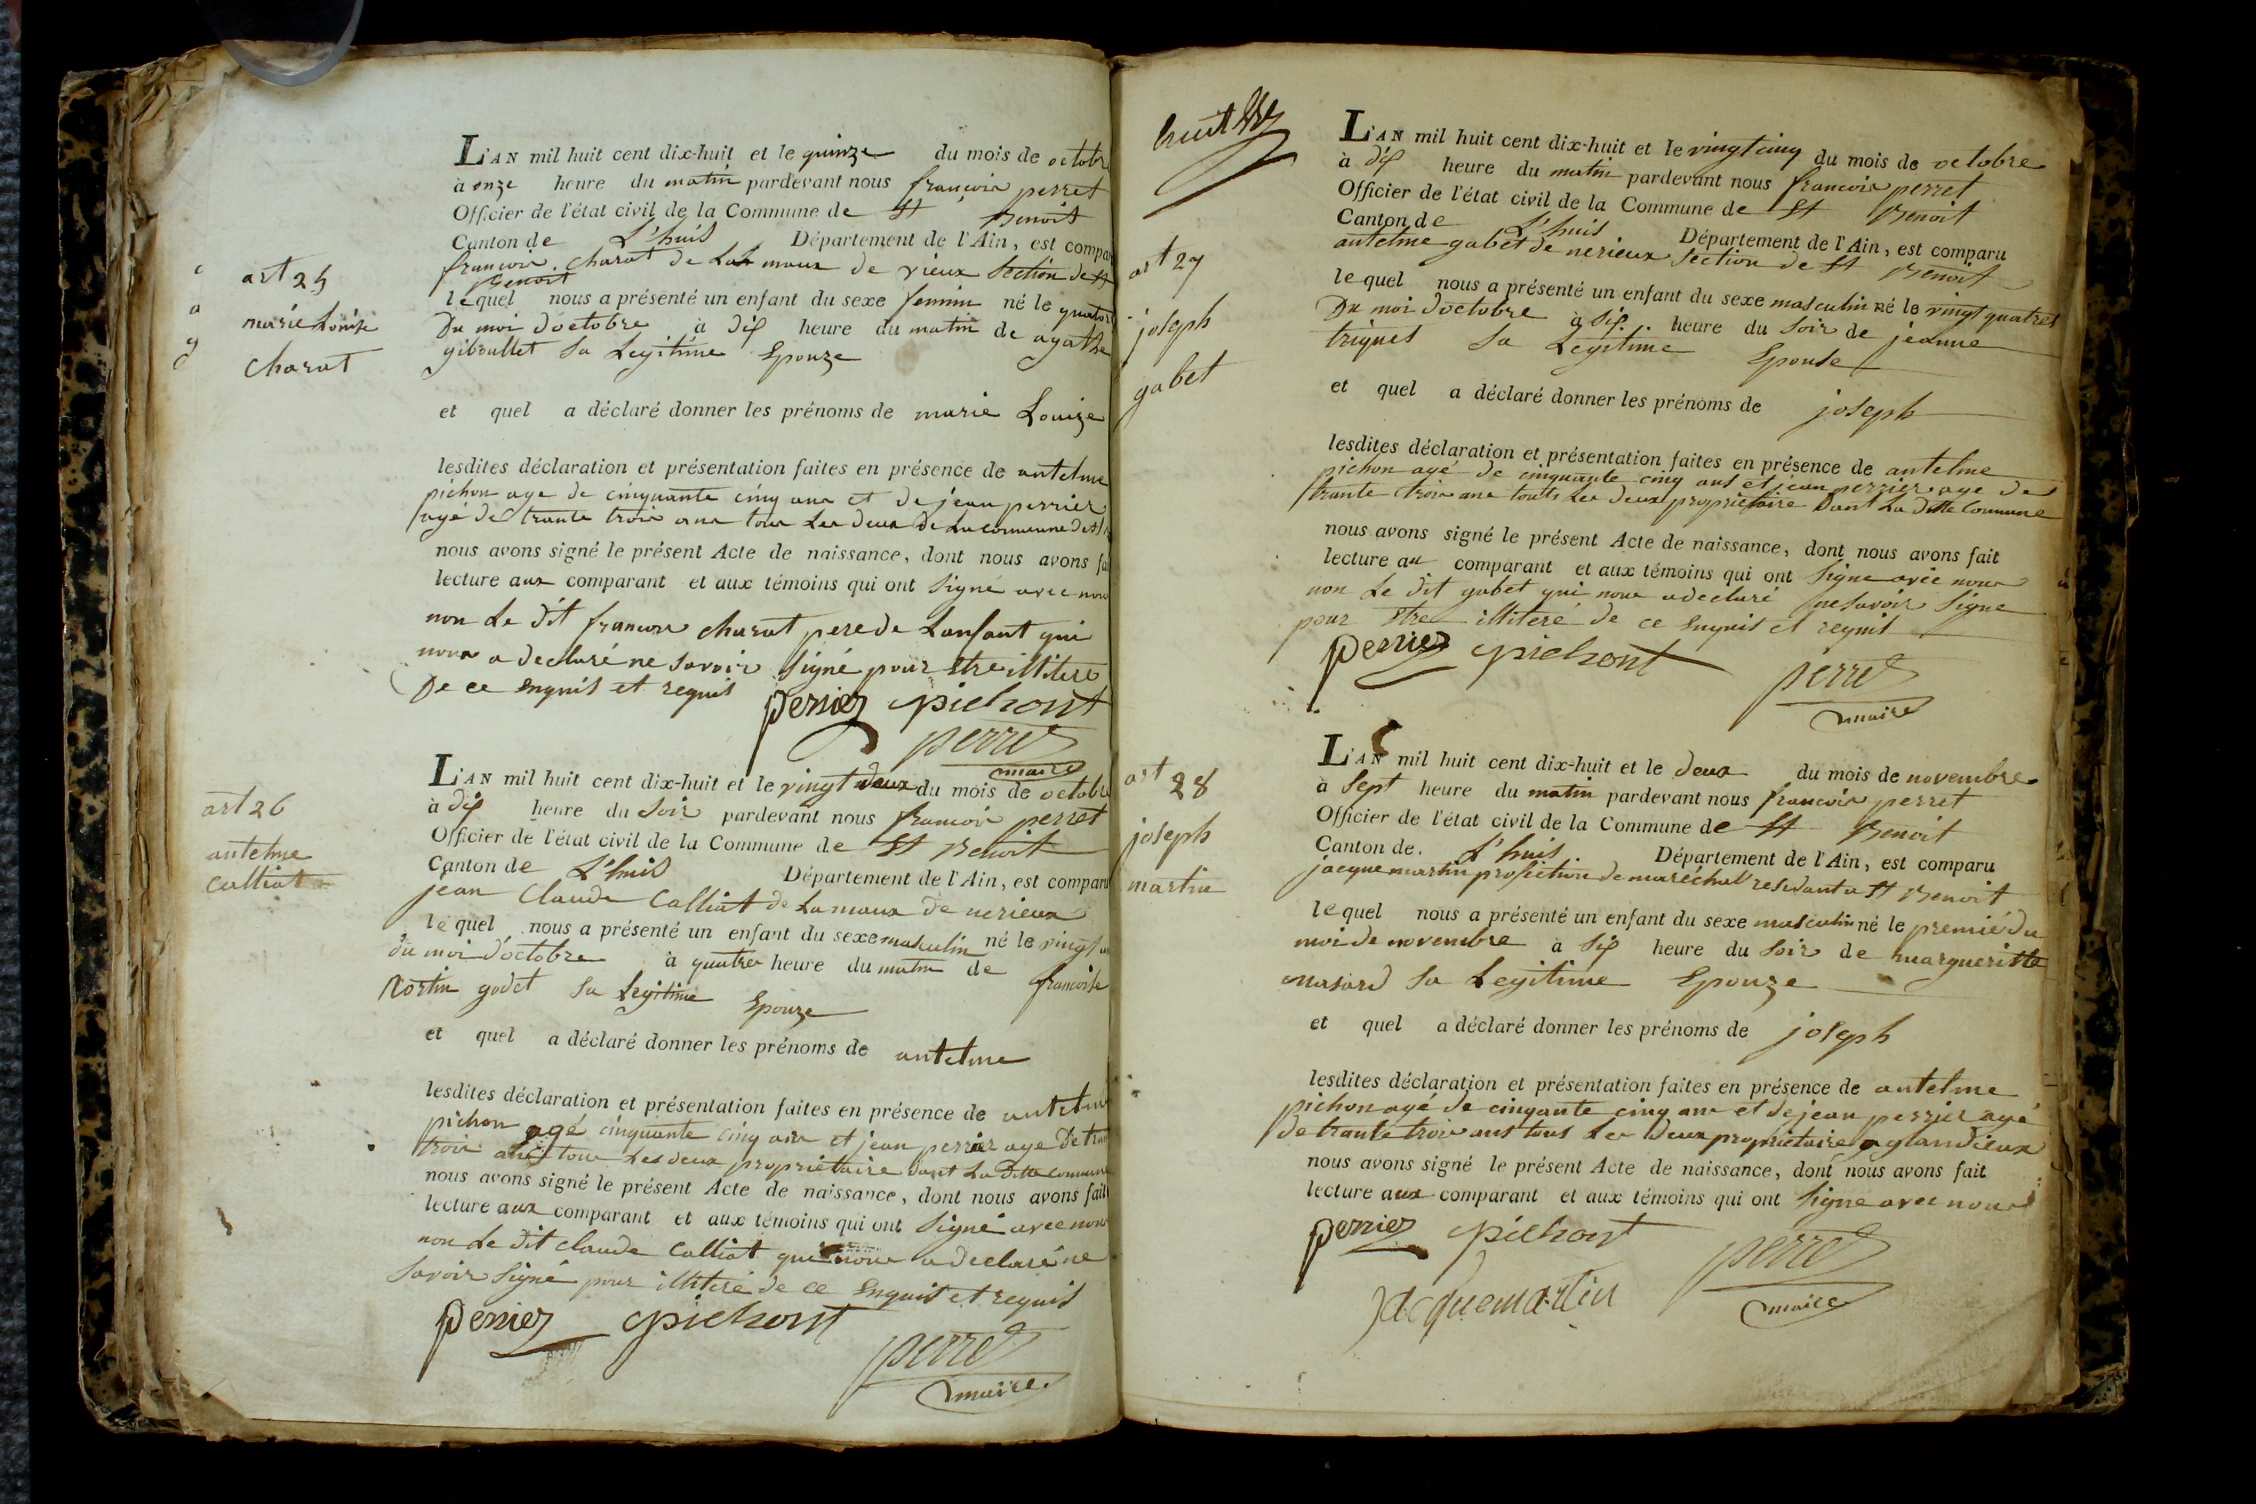 art 25
marie Louise
charat
L'AN mil huit cent dix-huit et le quinze du mois de octobre
à onze heure du matin pardevant nous francois perret
Officier de l'état civil de la Commune de St Benoit
Canton de L'huis Département de l'Ain, est compa
francois charat de maux de vieux Section de St
Benoit
lequel nous a présenté un enfant du sexe feminin né le quator
Du moi doctobre à dix heure du matin de agathe
gibrullet Sa Legitime Epouze
et quel a déclaré donner les prénoms de marie Louize
lesdites déclaration et présentation faites en présence de antelme
pichon age de cinquante cinq ans et de jean perrier
agé de trante trois ans tous Les deux de La commune de St
nous avons signé le présent Acte de naissance, dont nous avons fai
lecture aux comparant et aux témoins qui ont Signé avec nous
non Le dit francois charat pere de Lanfant qui
nous a declaré ne Savoir Signé pour Etre illiteré
De ce Enquis et requis
perrier pichont
perret
maire
art 26
antelme
Calliat
L'AN mil huit cent dix-huit et le vingt deux du mois de octobre
à dix heure du Soir pardevant nous francois perret
Officier de l'état civil de la Commune de St Benoit
Canton de L'huis Département de l'Ain, est comparu
jean Claude Calliat de Lamaux de nerieux
lequel nous a présenté un enfant du sexe masculin né le vingt un
du moi doctobre à quatre heure du matin de francoise
nortin godet Sa Legitime Epouze
et quel a déclaré donner les prénoms de antelme
lesdites déclaration et présentation faites en présence de antelme
pichon agé cinquante cinq ans et jean perrier age de tran
trois ans tous Les deux proprietaire dant La ditte commune
nous avons signé le présent Acte de naissance, dont nous avons fait
lecture aux comparant et aux témoins qui ont Signé avec nous
non Le dit claude Calliat qui nous a declaré ne
Savoir Signé pour illiteré de ce Enquis et requis
perrier pichont
perret
maire
huit
art 27
joseph
gabet
L'AN mil huit cent dix-huit et le vingt cinq du mois de octobre
à dix heure du matin pardevant nous francois perret
Officier de l'état civil de la Commune de St Benoit
Canton de L'huis Département de l'Ain, est comparu
antelme gabet de nerieux Section de St Benoit
lequel nous a présenté un enfant du sexe masculin né le vingt quatres
Du moi doctobre à Six heure du Soir de jeanne
triques Sa Legitime Epouse
et quel a déclaré donner les prénoms de joseph
lesdites déclaration et présentation faites en présence de antelme
pichon agé de cinquante cinq ans et jean perrier age de
trante trois ans touts Les deux proprietaire Dant La ditte Commune
nous avons signé le présent Acte de naissance, dont nous avons fait
lecture au comparant et aux témoins qui ont Signe avec nous
non Le dit gabet qui nous a declaré ne Savoir Signe
pour Etre illiteré de ce Enquis et requis
perrier pichont
perret
maire
art 28
joseph
martin
L'AN mil huit cent dix-huit et le deux du mois de novembre
à Sept heure du matin pardevant nous francois perret
Officier de l'état civil de la Commune de St Benoit
Canton de L'huis Département de l'Ain, est comparu
jacque martin profection de maréchal residant a St Benoit
lequel nous a présenté un enfant du sexe masculin né le premié du
moi de novembre à Six heure du Soir de margueritte
masard Sa Legitime Epouze
et quel a déclaré donner les prénoms de joseph
lesdites déclaration et présentation faites en présence de antelme
pichon agé de cinqante cinq ans et de jean perrier agé
de trante trois ans tous Les deux proprietaire a glandieux
nous avons signé le présent Acte de naissance, dont nous avons fait
lecture aux comparant et aux témoins qui ont Signe avec nous
perrier pichont
perret
jacque martin
maire